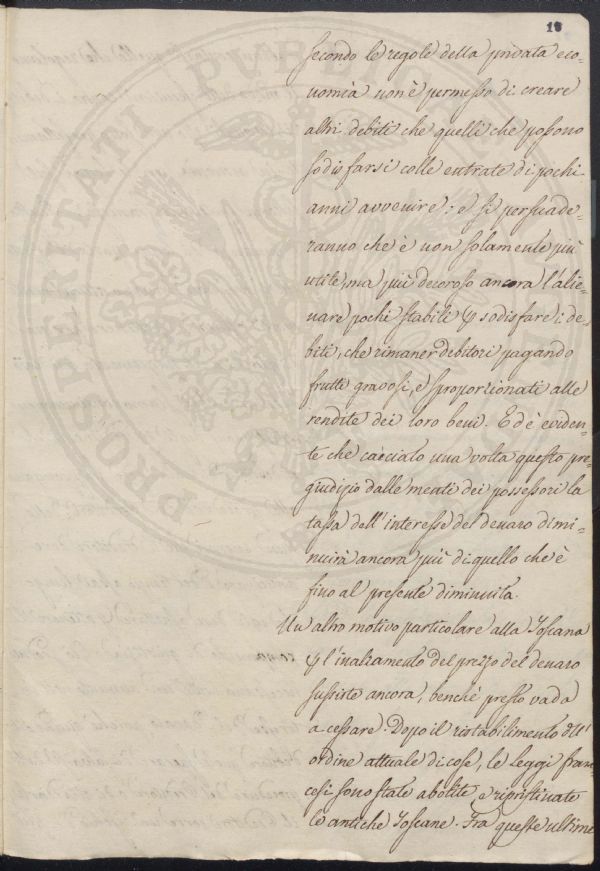 18
secondo le regole della privata eco-
nomia non è permesso di creare
altri debiti che quelli che possono
sodisfarsi colle entrate di pochi
anni avvenire: e si persuade-
ranno che è non solamente più
utile, ma più decoroso ancora l'alie-
nare pochi stabili p sodisfare i de-
biti, che rimaner debitori pagando
frutti gravosi, e sproporzionati alle
rendite dei loro beni. Ed è eviden-
te che cacciato una volta questo pre-
giudizio dalle menti dei possessori la
tassa dell'interesse del denaro dimi-
nuirà ancora più di quello che è
fino al presente diminuita.
Un altro motivo particolare alla Toscana
p l'inalzamento del prezzo del denaro
sussiste ancora, benchè presto vada
a cessare. Dopo il ristabilimento dell'
ordine attuale di cose, le leggi fran-
cesi sono state abolite, e ripristinate
le antiche Toscane. Fra queste ultime
PROSPERITATI PUBLI